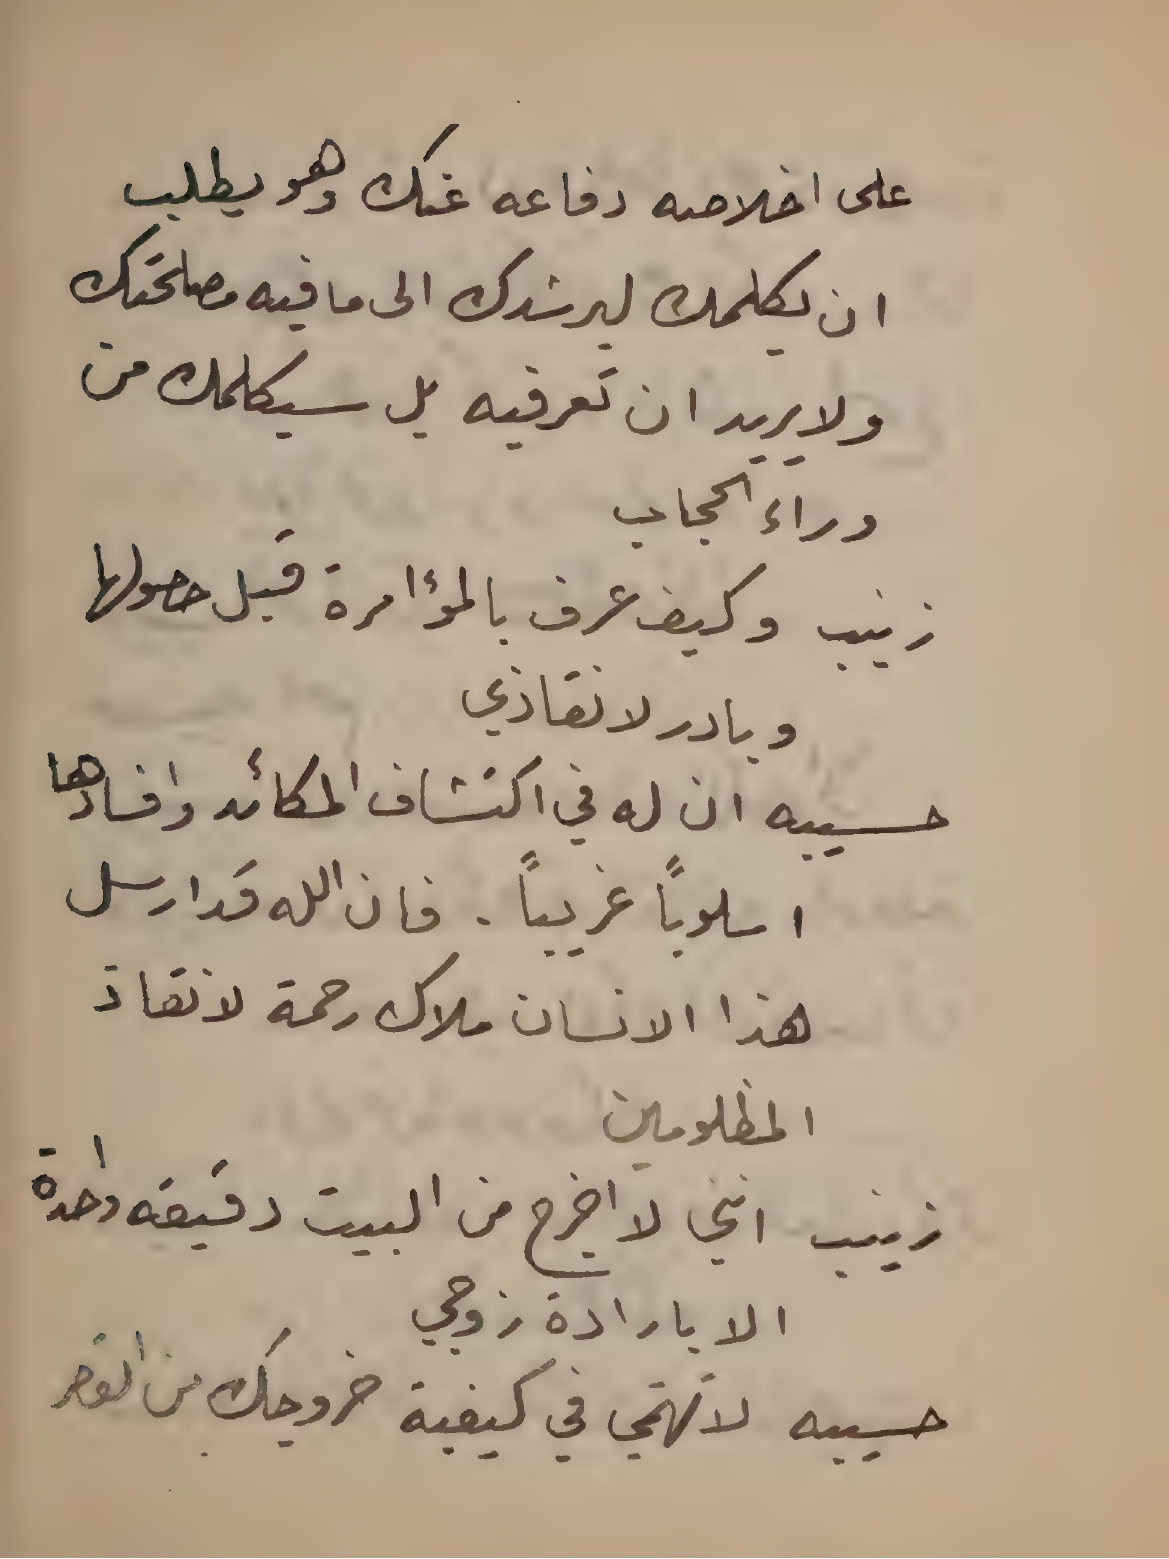 على اخلاصه دفاعه عنك وهو يطلب
ان يكلمك ليرشدك الى ما فيه مصلحتك
ولا يريد ان تعرفيه بل سيكلمك من
وراء الحجاب
زينب وكيف عرف بالمؤامرة قبل حصولها
وبادر لانقاذي
حسيبه ان له في اكتشاف المكائد وافسادها
اسلوباً غريباً . فان الله قد ارسل
هذا الانسان ملاك رحمة لانقاذ
المظلومين
زينب انني لا اخرج من البيت دقيقه واحدة
الا بارادة زوجي
حسيبه لا تهتمي في كيفية خروجك من القصر